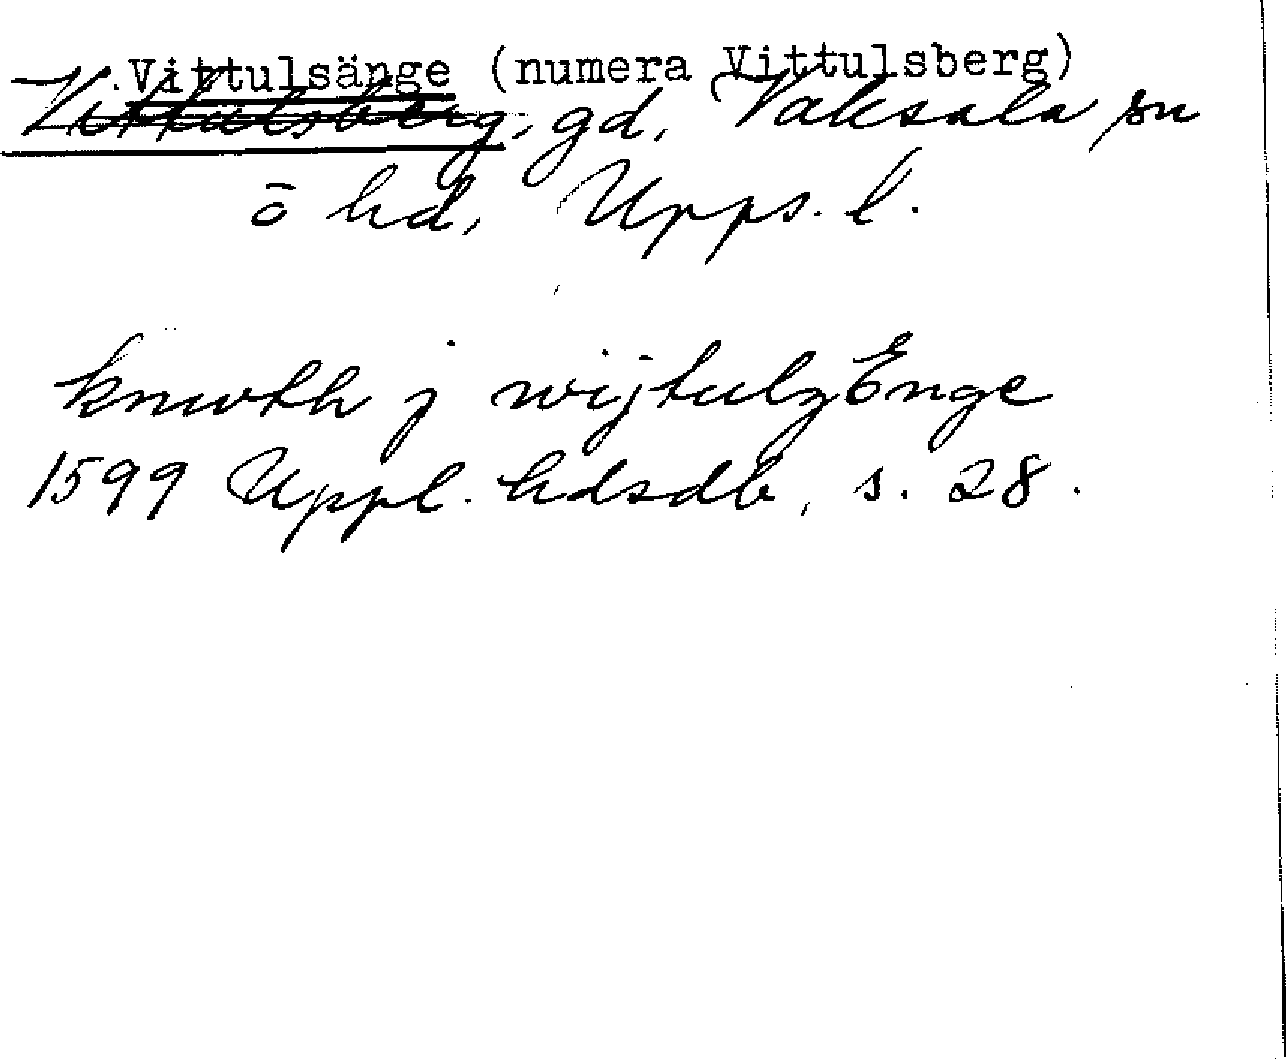 Vittulsänge (numera Vittulsberg)
Vittulsberg, gd, Vaksala sn
ö hd, Upps. l.
knwth j wijtulz Enge
1599 Uppl. hdsdb, s. 28.